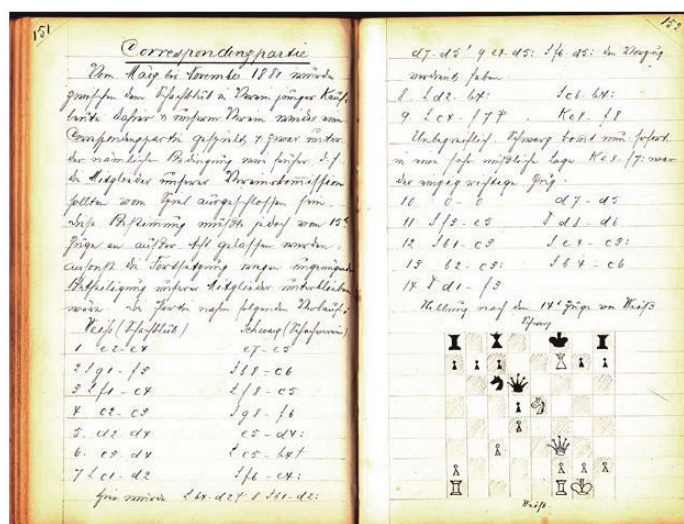 151
Correspondenzpartie
Vom März bis November 1880 wurde
zwischen dem Schachklub im Verein junger Kauf-
leute dahier & unserem Verein wieder eine
Correspondenzpartie gespielt & zwar unter
der nämlichen Bedingung wie früher, d. h.
die Mitglieder unserer Vereinskommission
sollten vom Spiel ausgeschlossen sein.
Diese Bestimmung mußte jedoch vom 15t
Zuge an außer Acht gelassen werden,
ansonst die Fortsetzung wegen ungenügender
Betheiligung unserer Mitglieder unterblieben
wäre. Die Partie nahm folgenden Verlauf:
Weiß (Schachklub) Schwarz (Schachverein)
1 e2-e4 e7-e5
2 Sg1-f3 Sb8-c6
3 Lf1-c4 Lf8-c5
4 c2-c3 Sg8-f6
5. d2-d4 e5-d4:
6. c3-d4 Lc5-b4†
7 Lc1-d2 Sf6-e4:
Hier würde Lb4-d2† 8 Sb1-d2:
152
d7-d5! 9 e4-d5: Sf6-d5: den Vorzug
verdient haben.
8. Ld2-b4: Sc6-b4:
9 Lc4-f7† Ke8-f8
Unbegreiflich. Schwarz kommt nun sofort
in eine sehr mißliche Lage. Ke8-f7: war
der einzig richtige Zug.
10 0-0 d7-d5
11 Sf3-e5 Dd8-d6
12 Sb1-c3 Se4-c3:
13 b2-c3: Sb4-c6
14 Dd1-f3
Stellung nach dem 14t Zuge von Weiß
Schwarz
Weiß.